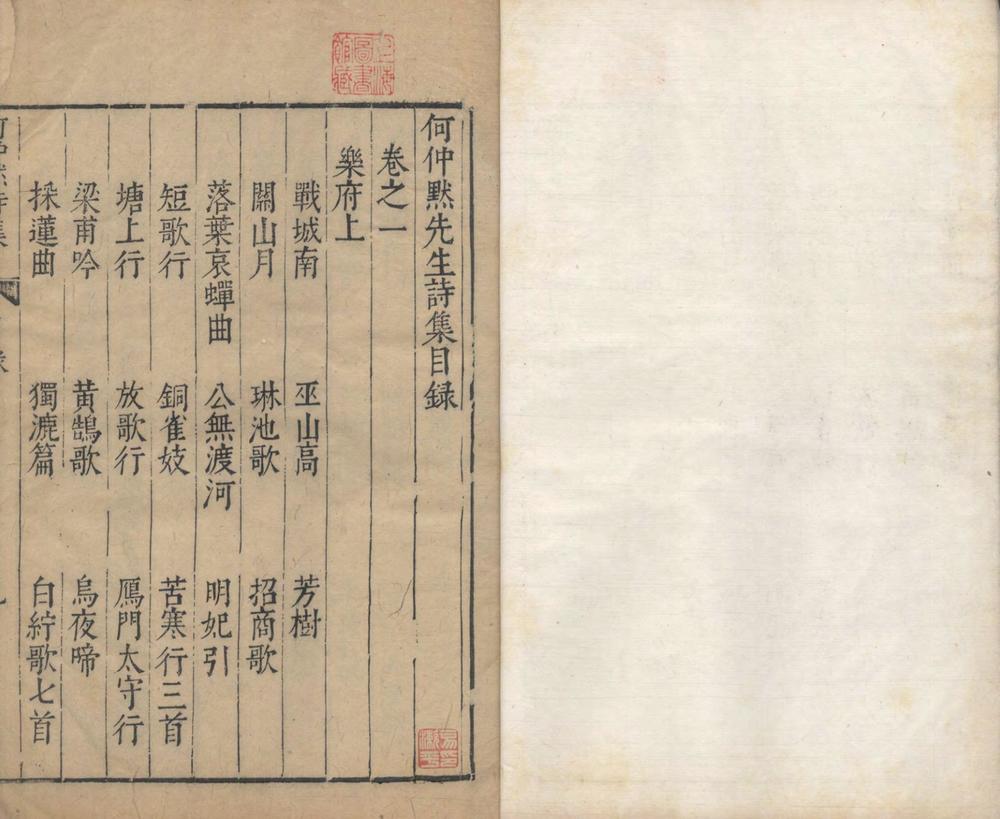 上海圖書館藏
何仲默先生詩集目録
卷之一
樂府上
戰城南 巫山高 芳樹
關山月 琳池歌 招商歌
落葉哀蟬曲 公無渡河 明妃引
短歌行 銅雀妓 苦寒行三首
塘上行 放歌行 鴈門太守行
梁甫吟 黃鵠歌 烏夜啼
採蓮曲 獨漉篇 白紵歌七首